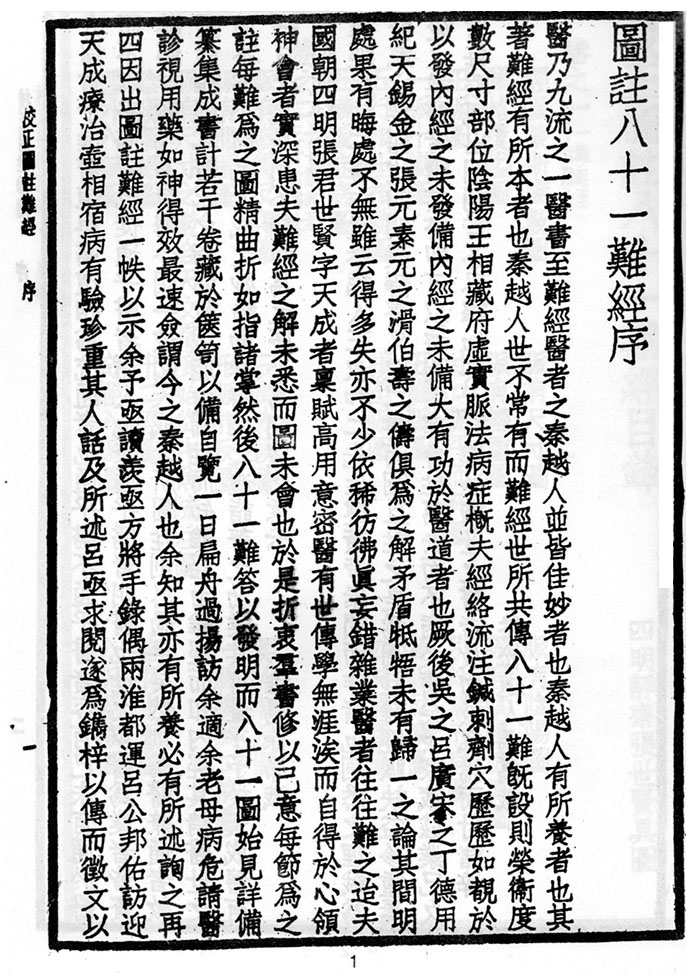 圖註八十一難經序
醫乃九流之一醫書至難經醫者之秦越人並皆佳妙者也秦越人有所養者也其
著難經有所本者也秦越人世不常有而難經世所共傳八十一難旣設則榮衞度
數尺寸部位陰陽王相藏府虛實脈法病症槪夫經絡流注鍼刺劑穴歷歷如觀於
以發內經之未發備內經之未備大有功於醫道者也厥後吳之呂廣宋之丁德用
紀天錫金之張元素元之滑伯壽之儔俱爲之解矛盾牴牾未有歸一之論其間明
處果有晦處不無雖云得多失亦不少依稀彷彿眞妄錯雜業醫者往往難之迨夫
國朝四明張君世賢字天成者稟賦高用意密醫有世傳學無涯涘而自得於心領
神會者實深患夫難經之解未悉而圖未會也於是折衷羣書修以己意每節爲之
註每難爲之圖精曲折如指諸掌然後八十一難答以發明而八十一圖始見詳備
纂集成書計若干卷藏於篋笥以備自覽一日扁舟過揚訪余適余老母病危請醫
診視用藥如神得效最速僉謂今之秦越人也余知其亦有所養必有所述詢之再
四因出圖註難經一帙以示余予亟讀羨亟方將手錄偶兩淮都運呂公邦佑訪迎
天成療治壺相宿病有驗珍重其人話及所述呂亟求閱遂爲鐫梓以傳而徵文以
校正圖註難經 序
1